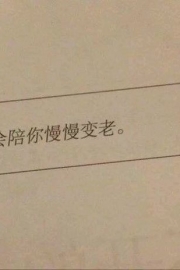 会陪你慢慢变老。